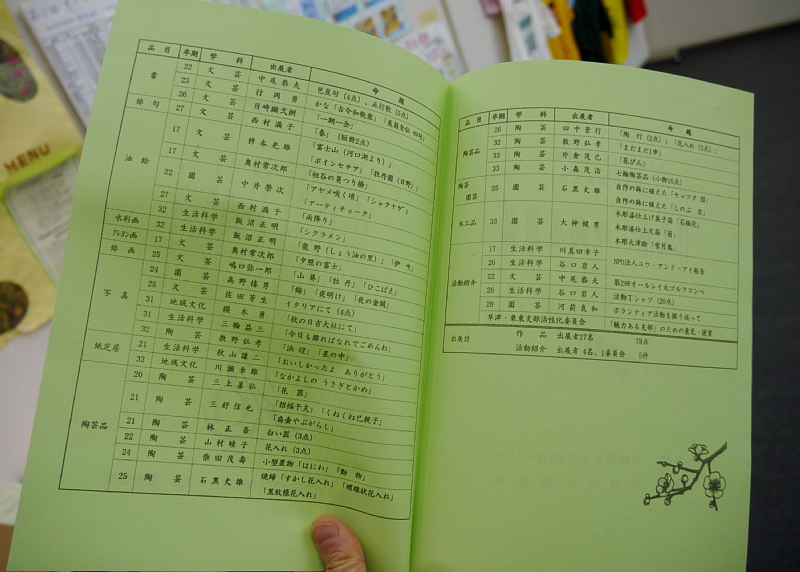 MENU
品目 卒期 学科 出展者 命題
書 22 文芸 中尾恭夫 芭蕉句(4点)、五行歌(5点)
23 文芸 行岡勇 かな「古今和歌集」「風姿全伝 四句」
俳句 26 文芸 日崎顕弌朗 「一期一会」
油絵 27 文芸 西村満子 「春」(短冊2点)
17 文芸 桝本光雄 「富士山(河口湖より)」
「ポインセチア」「牡丹園(日野)」
17 文芸 奥村常次郎 「祖谷の蔓つり橋」
22 園芸 中井榮次 「アヤメ咲く頃」「シャクナゲ」
「アーティチョーク」
27 文芸 西村満子 「雨降り」
水彩画 32 生活科学 飯沼正明 「シクラメン」
クレヨン画 32 生活科学 飯沼正明 「龍野(しょう油の里)」「伊吹」
俳画 17 文芸 奥村常次郎 「夕照の富士」
写真 25 文芸 嶋口弥一郎 「山藤」「牡丹」「ひこばえ」
24 園芸 高野禧男 「梅」「夜明け」「夜の金閣」
25 文芸 佐田芳生 イタリアにて(4点)
31 地域文化 櫻木勇 「秋の日吉大社にて」
31 生活科学 三輪益三 「今日も離ればなれでごめんね」
32 陶芸 教野弘孝 「浜辺」「里の中」
紙芝居 21 生活科学 秋山謙二 「おいしかったよ ありがとう」
33 地域文化 川瀬幸雄 「なかよしの うさぎとかめ」
陶芸品 20 陶芸 三上善弘 「花器」
21 陶芸 三好信也 「招福干支」「くねくね巳親子」
「扁壷やぶがらし」
21 陶芸 林正吾 白い器(3点)
22 陶芸 山村睦子 花入れ(3点)
24 陶芸 柴田茂壽 小型置物「はにわ」「動物」
25 陶芸 石黒丈雄 焼締「すかし花入れ」「螺線状花入れ」
「黒紋様花入れ」
品目 卒期 学科 出展者 命題
陶芸品 26 陶芸 田中景行 「陶灯(2点)」「花入れ(2点)」
32 陶芸 教野弘孝 「まだまだ1歩」
33 陶芸 片倉茂己 「花びん」
33 陶芸 小森茂治 七輪陶芸品(小物10点)
陶芸園芸 25 園芸 石黒丈雄 自作の鉢に植えた「セッコク Ⅲ」
自作の鉢に植えた「しのぶ Ⅱ」
木工品 33 園芸 大神健男 木彫漆仕上げ菓子箱「石楠花」
木彫漆仕上文箱「菊」
木彫大津絵「雪月鬼」
活動紹介 17 生活科学 川真田幸子 NPO法人ユウ・アンド・アイ報告
26 生活科学 谷口君人
22 文芸 中尾恭夫 第2回オールレイ大ゴルフコンペ
26 生活科学 谷口君人 活動Tシャツ(20点)
28 園芸 河前良和 ボランティア活動を振り返って
草津・栗東支部活性化委員会 「魅力ある支部」のための意見・提言
出展計 作品 出展者27名 78点
活動紹介 出展者 4名、1委員会 5件